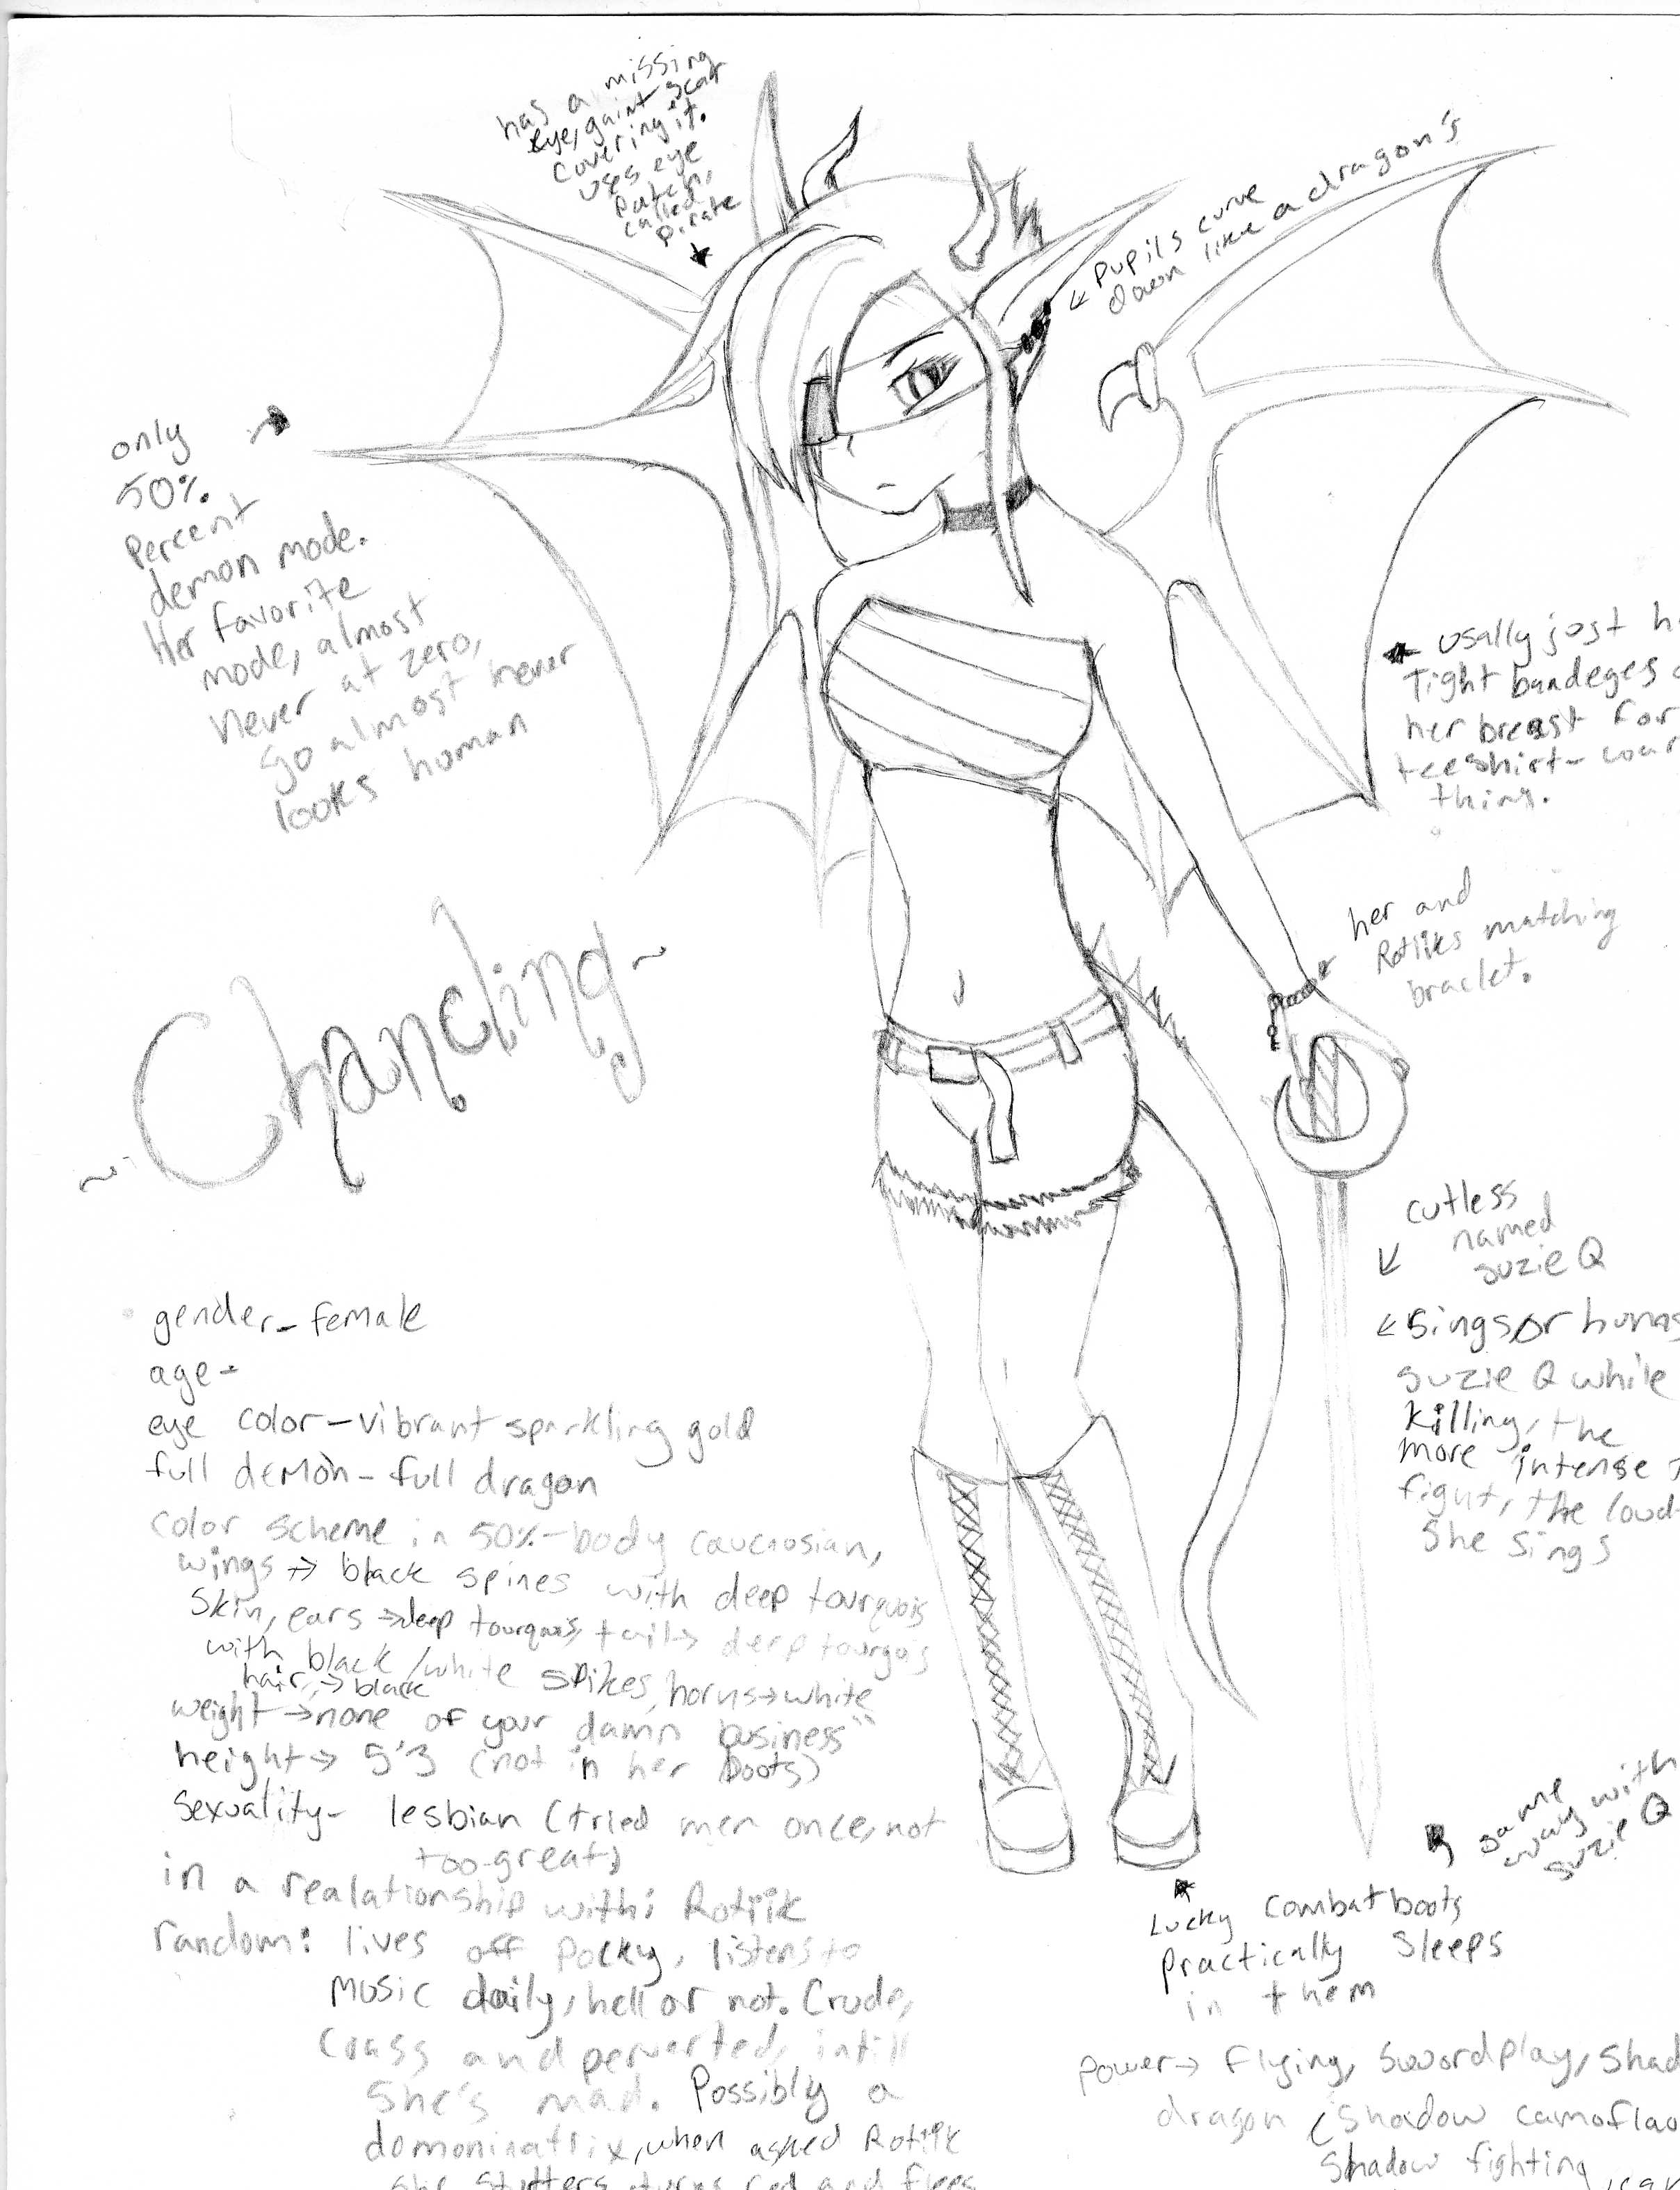 has a missing
eye, gaint scar
covering it.
uses eye
patch,
called
pirate
pupils curve
down like a dragon's
only
50%
percent
demon mode.
Her favorite
mode, almost
never at zero,
so almost never
looks human
usally just h
Tight bandeges
her breast for
teeshirt-
thing.
her and
Rotiiks matching
braclet.
~Chandling~
cutless
named
suzie Q
sings or hums
suzie Q while
killing, the
more intense
fight, the loud
she sings
gender- female
age-
eye color- vibrant sparkling gold
full demon- full dragon
color scheme in 50%- body caucaosian,
wings → black spines with deep tourquois
skin, ears → deep tourquois, tail → deep tourqois
with black/white spikes, horns → white
hair, → black
weight → none of your damn business"
height → 5'3 (not in her boots)
sexuality- lesbian (tried men once, not
too great)
in a realationship with: Rotiik
random: lives off pocky, listens to
music daily, hell or not. Crude,
crass and perverted, intill
she's mad. Possibly a
domoninatrix, when asked Rotiik
she stutters turns red and flees
same
way with
suzie Q
Lucky combat boots
practically sleeps
in them
power → flying, swordplay, shad
dragon (shadow camoflao
shadow fighting